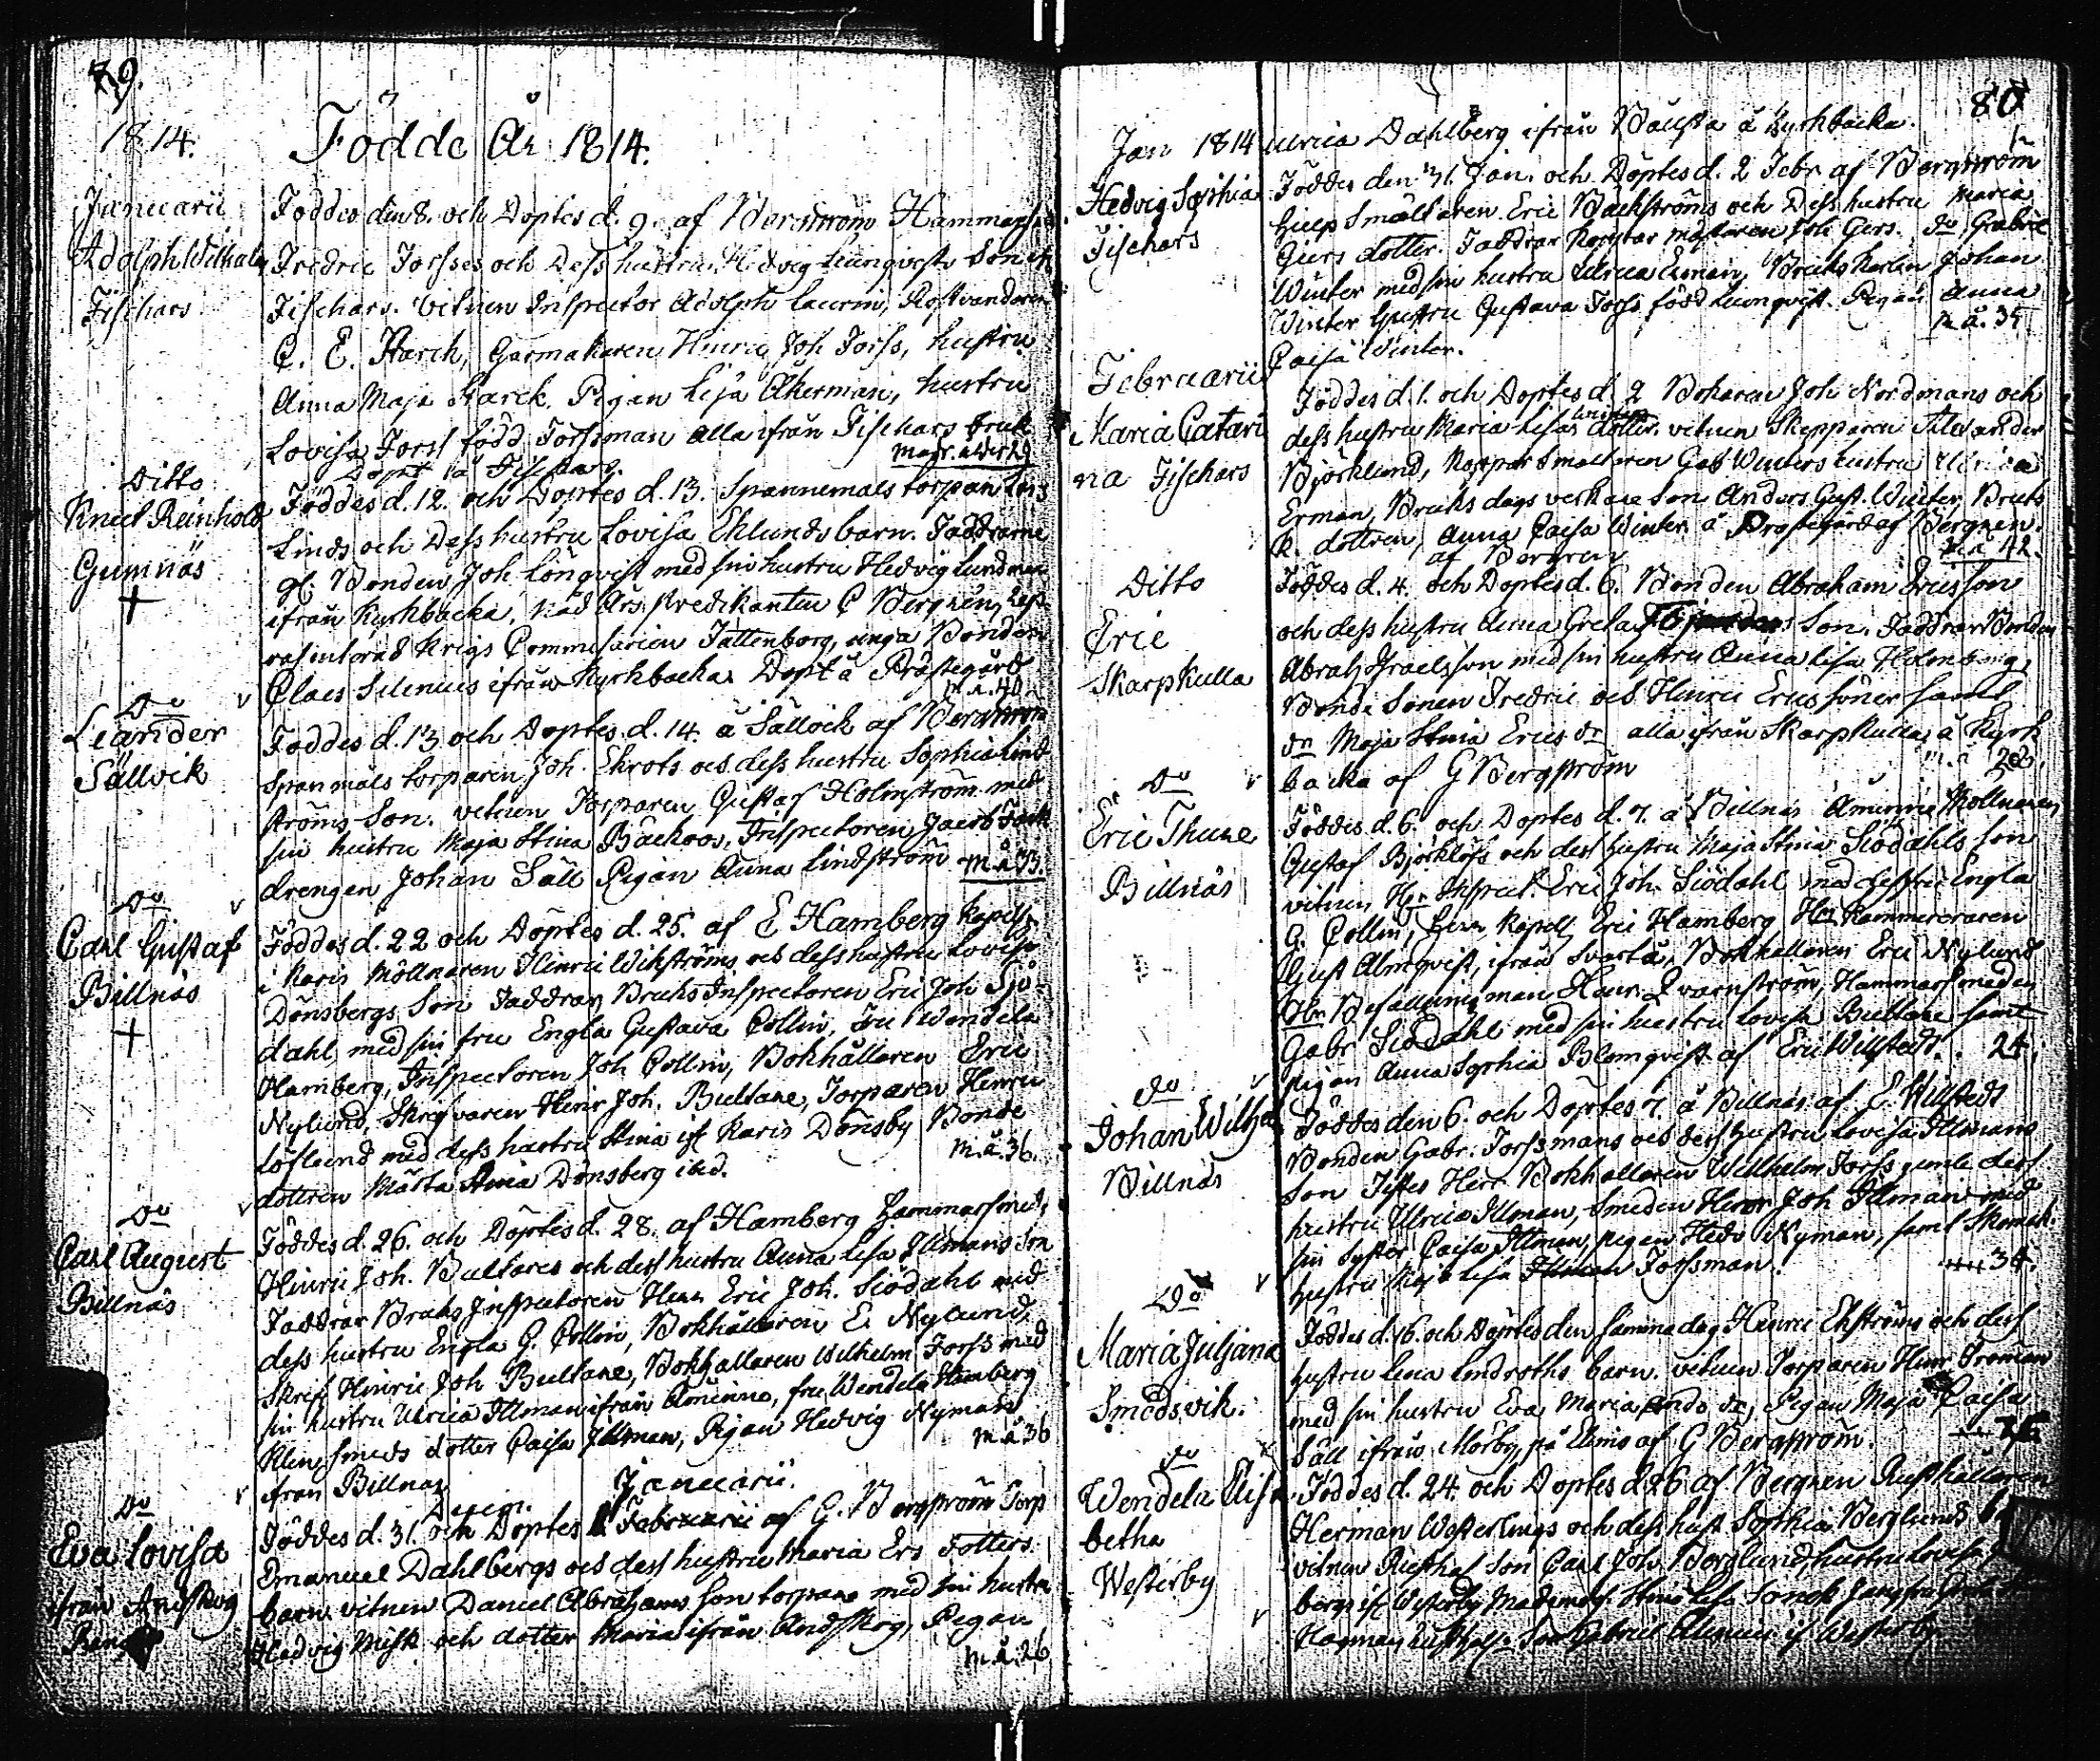 79.
1814.
Födde År 1814.
Januarii
Adolph Wilhalm
Fischars
Föddes den 8. och Döptes d. 9. af Bergström Hammars
Fredric Forsses och Dess hustru Hedvig Liunqvists Son if
Fischars. vitnen Inspector Adolph Laurin, Rostvandaren
C. E. Starck, Garmakaren Henric Joh Forss, hustru
Anna Maja Starck, Pigan Lisa Åkerman, hustru
Lovisa Forss född Forssman alla ifrån Fischars Bruk
Döpt på Fischars.
Ditto
Knut Reinhold
Gumnäs
Föddes d. 12. och Döptes d. 13. Spannemåls torparen
Linds och Dess hustru Lovisa Eklunds barn. Faddrarne
gl. Bonden Joh Lönqvist med sin hustru Hedvig Lundman
ifrån Kyrkbacka, Nåd Års Predikanten C Bergren,
Krigs Commisarien Tattenborg, unga Bonden
Claes Silenius ifrån Kyrkbacka Döpt å Prästegård
m.å. 40
Do
Leander
Sällvik
Föddes d. 13 och Döptes d. 14. å Sällvik af Bergström
Spanmåls torparen Joh. Ekrots och dess hustru Sophia Lind
ströms Son. vitnen Torparen Gustaf Holmström med
sin hustru Maja Stina Bäckoos, Inspectoren Jacob
drengen Johan Säll Pigan Anna Lindström m.å 33.
Do
Carl Gustaf
Billnäs
Föddes d. 22 och Döptes d. 25. af E Hamberg Kapell:
i Karis Möllnaren Hinric Wikströms och dess hustru Lovisa
Dönsbergs Son Faddrar Bruks Inspectoren Eric Joh Sjö-
dahl, med sin fru Engla Gustava Collin, Fru Wendela
Hamberg, Inspectoren Joh Collin, Bokhållaren Eric
Nylund, Skrifvaren Hinr Joh. Bultare, Torparen Henric
Löflund med dess hustru Stina if Karis Dönsby Bonde
dottren Märta Stina Dönsberg ibid.
m.å. 36.
Do
Carl August
Billnäs
Föddes d. 26. och Döptes d. 28. af Hamberg Hammarsmed:
Hinric Joh. Bultares och dess hustru Anna Lisa Illmans Son
Faddrar Bruks Inspectoren Herr Eric Joh. Siödahl med
dess hustru Engla G. Collin, Bokhållaren E. Nylund,
Skrif Hinric Joh Bultare, Bokhållaren Wilhelm Forss med
sin hustru Ulrica Illman ifrån Åminne, fru Wendela Hamberg
Klensmeds dotter Caisa Illman, Pigan Hedvig Nyman
ifrån Billnäs
m.å 36
Do
Eva Lovisa
ifrån Andskog
Decem.
Januarii.
Föddes d. 31. och Döptes Februarii af G. Bergström Torp
Emanuel Dahlbergs och dess hustru Maria Ers dotters
barn. vitnen Daniel Abrahams Son torpare med sin hustru
Hedvig Misk och dotter Maria ifrån Andskog, Pigan
m.å. 26
80
Jan 1814
Ulrica Dahlberg ifrån å Kyrkbacka.
Hedvig Sophia
Fischars
Föddes den 31. Jan. och Döptes d. 2 Febr af Bergström
Smältaren Eric Backströms och Dess hustru Maria
Giers dotter. Faddrar Koppar mästaren Joh Giers. do Gabric
Winter med sin hustru Ulrica Erman, Bruks Karlen Johan
Winter hustru Gustava Forss född Liunqvist. Pigan Anna
Caisa Winter.
Februarii
Maria Catari
na Fischars
Föddes d. 1. och Döptes d. 2 Bokaren Joh Nordmans och
dess hustru Maria Lisas dotter. vitnen Skepparen Alexander
Björklund, Koppar Smältaren Gab Winters hustru Ulrica
Erman, Bruks dags verkare Son Anders Gust. Winter Bruks
K. dottren, Anna Caisa Winter å Prostegård af Bergren.
m.å 42.
Ditto
Eric
Skarpkulla
af Bergren
Föddes d. 4. och Döptes d. 6. Bonden Abraham Ericsson
och dess hustru Anna Greta Son. Faddrar Bonden
Abrah Israelsson med sin hustru Anna Lisa Holmberg
Bonde Sonen Fredric och Hinric Ericssöner samt
dr Maja Stina Erics dr alla ifrån Skarpkulla, å Kyrk
backa af G Bergström
m.å 28.
Do
Eric Thure
Billnäs
Föddes d. 6. och Döptes d. 7. å Billnäs Åminne Möllnaren
Gustaf Björklöfs och dess hustru Maja Stina Siödahls Son
vitnen, Hr Inspect. Eric Joh. Siödahl med dess fru Engla
G. Collin, Herr Kapell Eric Hamberg Hr Kammereraren
Gust Almqvist, ifrån Svartå, Bokhållaren Eric Nylund
Hr Befallningsman Henr. Qvarnström, Hammarsmeden
Gabr Siödahl med sin hustru Lovisa Bultare samt
pigan Anna Sophia Blomqvist af Eric Willstedt. 24.
do
Johan Wilhel
Billnäs
Föddes den 6. och Döptes 7. å Billnäs af E Willstedt
Bonden Gabr. Forssmans och dess hustru Lovisa Illmans
Son Testes Herr Bokhållaren Willhelm Forss jemte dess
hustru Ulrica Illman, Smeden Henr Joh Illman med
sin syster Caisa Illman, pigan Hedv Nyman, samt Skomak:
hustru Maja Lisa Forssman.
34.
Do
Maria Juliana
Smedsvik.
Föddes d. 16. och Döptes den samma dag Henric Ekströms och dess
hustru Lena Lindroths barn. vitnen Torparen Hinr Froman
med sin hustru Eva Maria Ands dr, Pigan Maja Caisa
Säll ifrån Mörby, på Elimo af G Bergström.
do
Wendela Elisa
betha
Westerby
Föddes d. 24. och Döptes d. 26 af Bergren Rusthållaren
Herman Westerlings och dess hust Sophia Berglunds
vitnen Rusthål Son Carl Joh Berglund, hustru Lovisa
bergs if Westerby Mademois. Stina Lisa Sonck
Hagman Rusthål. Son Gabriel if Westerby